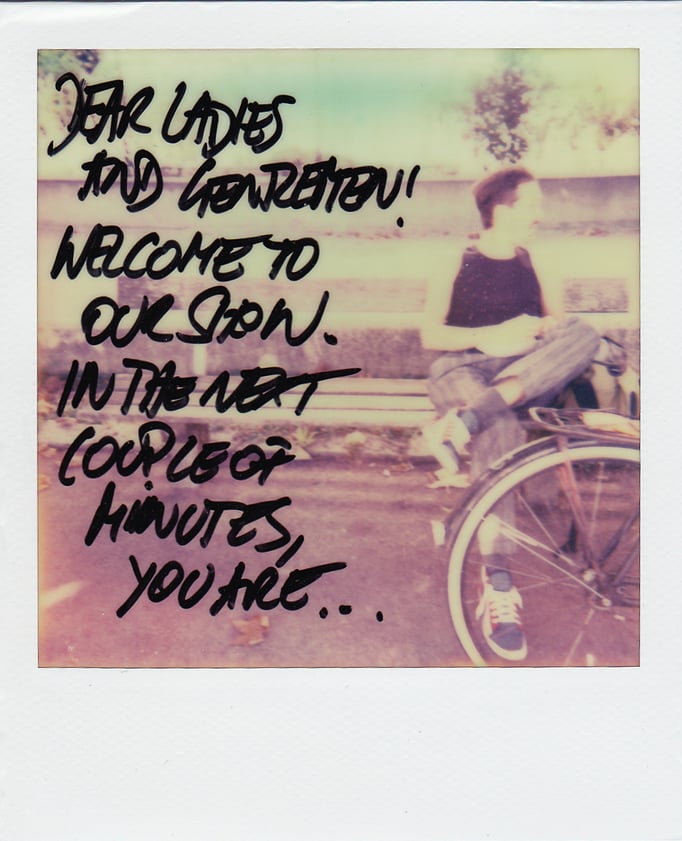 DEAR LADIES
AND GENTLEMEN!
WELCOME TO
OUR SHOW.
IN THE NEXT
COUPLE OF
MINUTES,
YOU ARE...